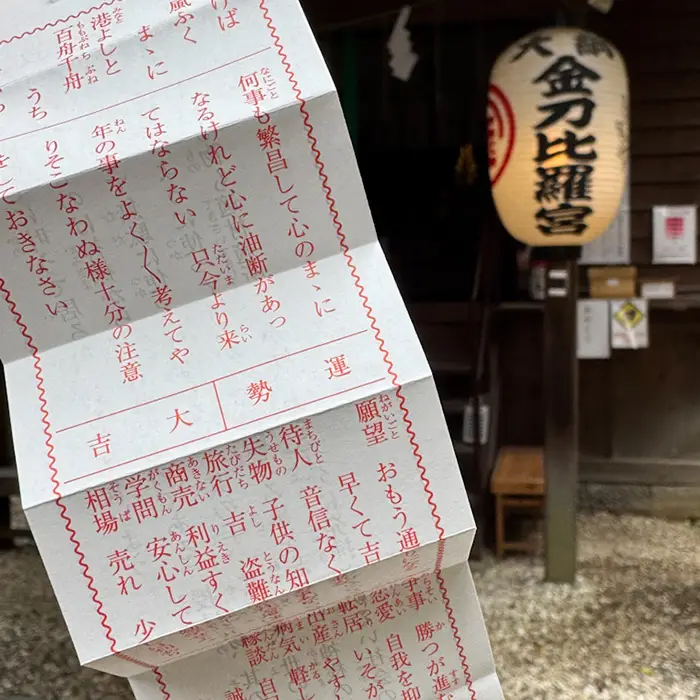 けば
嵐ふく
まゝに
港よしと
百舟千舟
うち
何事も繁昌して心のまゝに
なるけれど心に油断があっ
てはならない 只今より来
年の事をよく〱考えてや
りそこなわぬ様十分の注意
をしておきなさい
運勢
大吉
願望 おもう通
早くて吉
待人 音信なく
失物 子供の知
旅行 吉 盗難
商売 利益すく
学問 安心して
相場 売れ 少
争事 勝つが進
恋愛 自我を抑
転居 いそが
出産 やす
病気 軽し
縁談 自
誠
金刀比羅宮